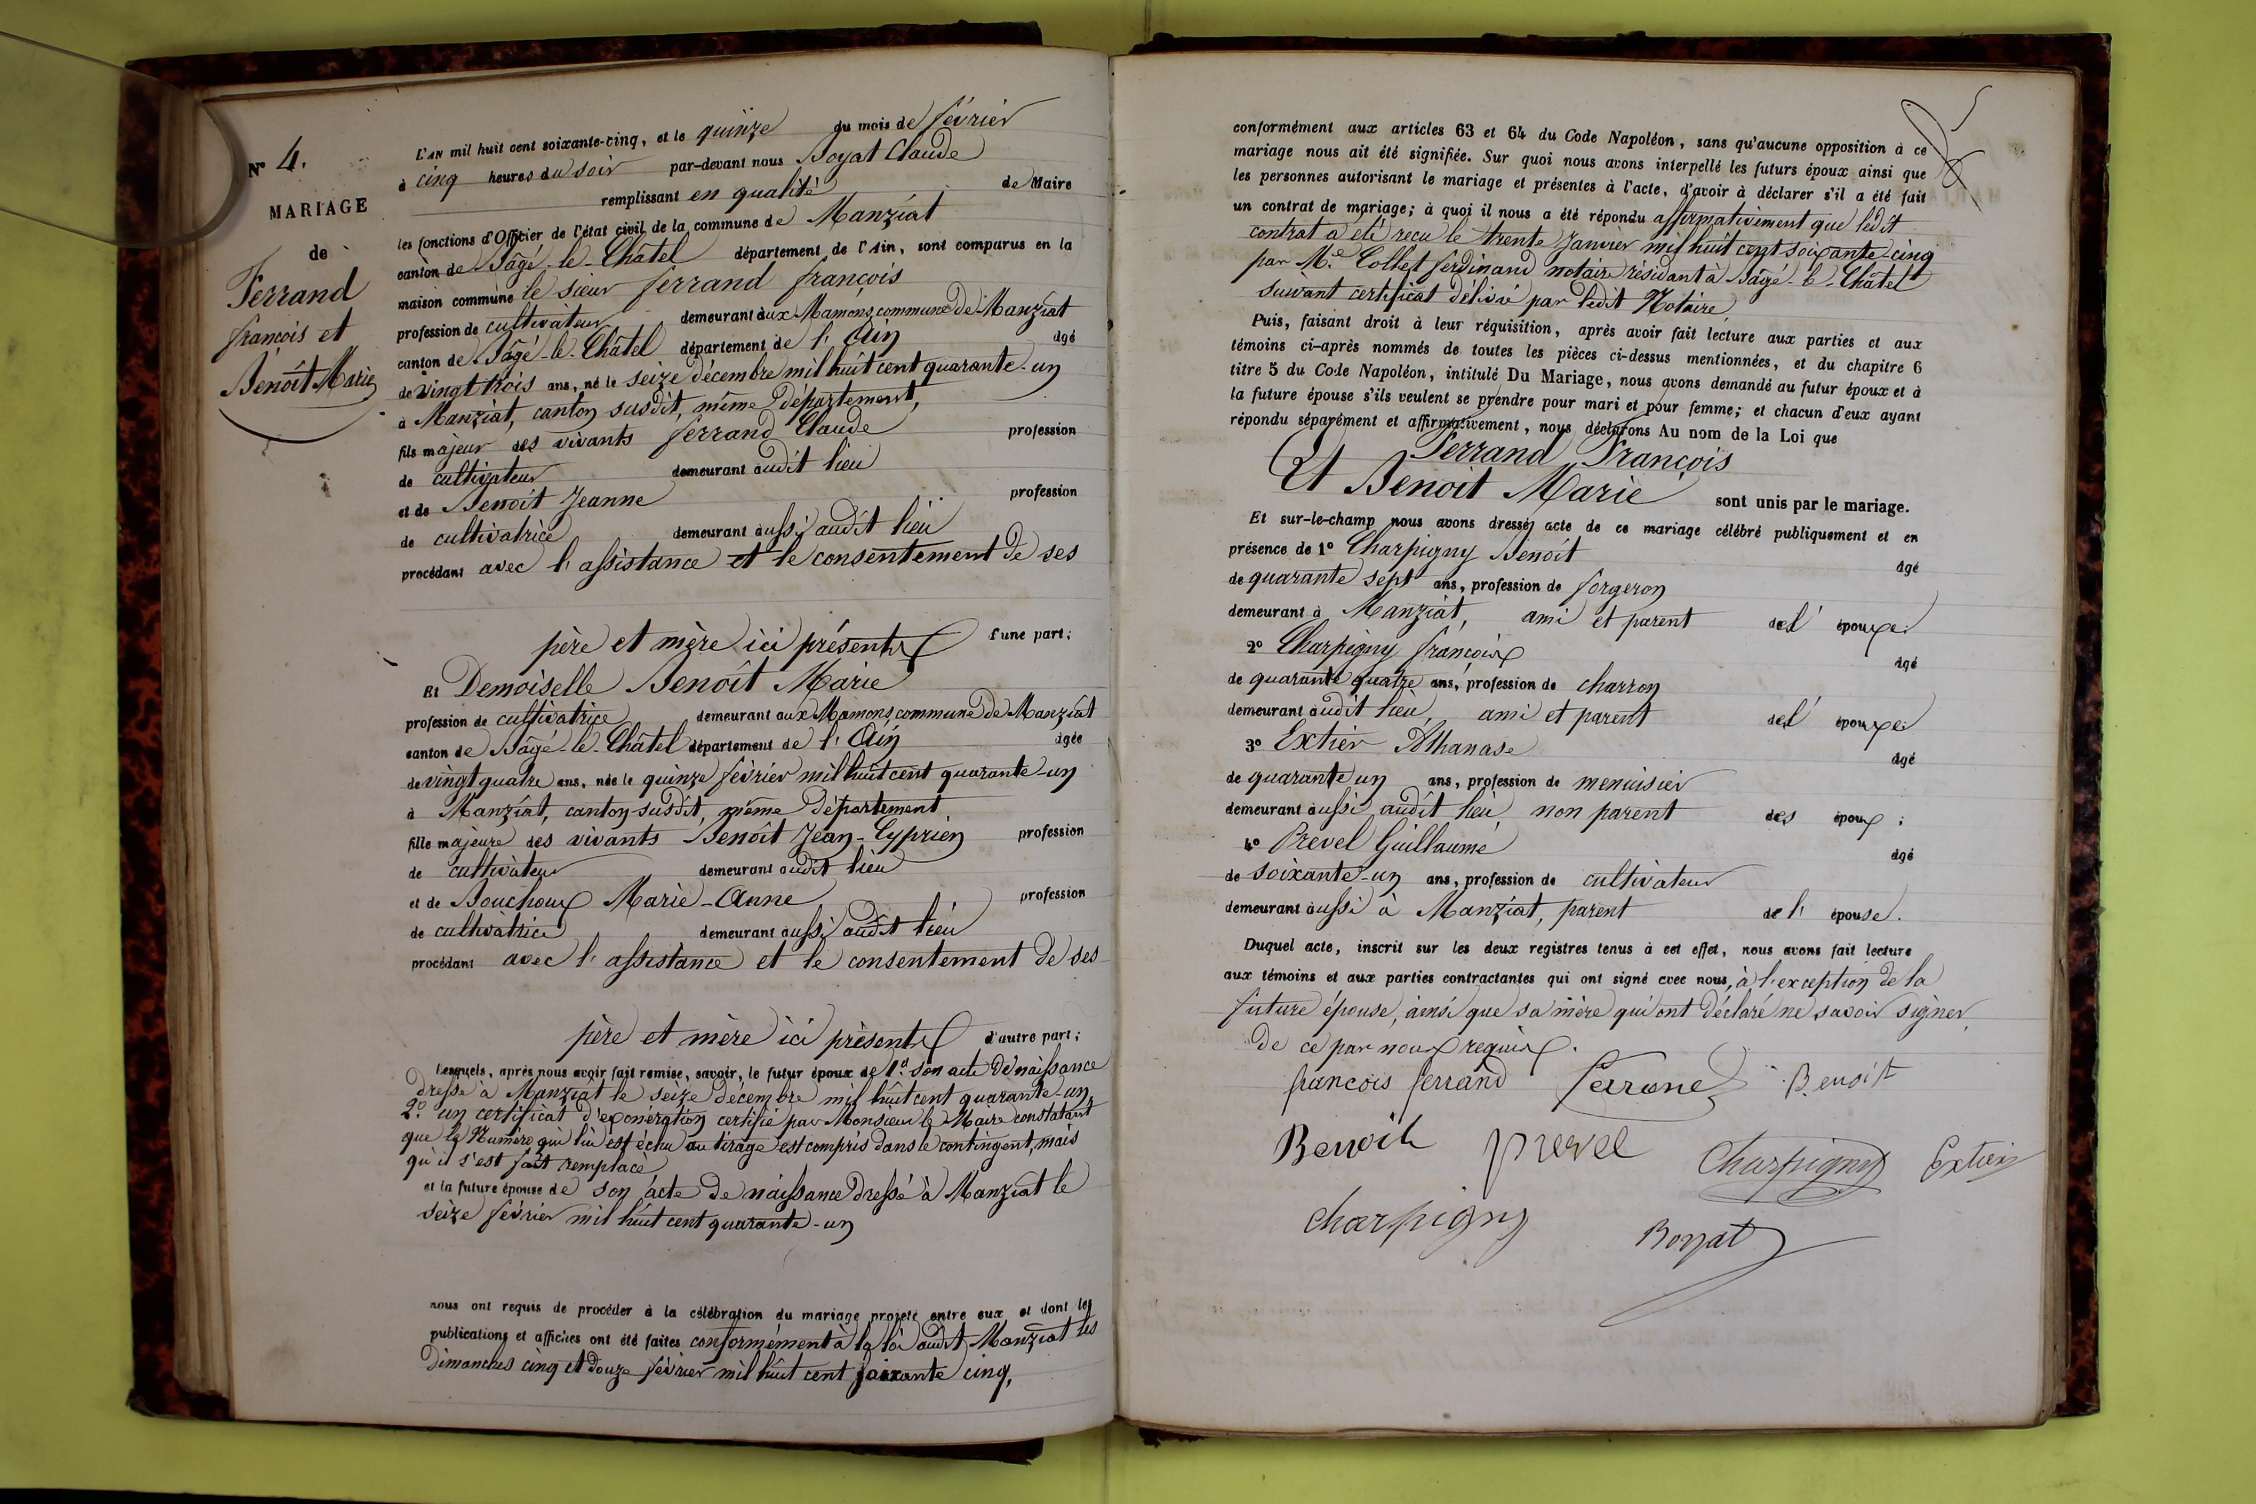 N° 4.
MARIAGE
de
Ferrand
françois et
Benoît Marie
L'AN mil huit cent soixante-cinq, et le quinze du mois de février
à cinq heures du soir par-devant nous Boyat Claude
remplissant en qualité de Maire
les fonctions d'Officier de l'état civil de la commune de Manziat
canton de Bâgé-le-Châtel département de l'Ain, sont comparus en la
maison commune le sieur ferrand françois
profession de cultivateur demeurant aux Mamons, commune de Manziat
canton de Bâgé-le-Châtel département de l'Ain âgé
de vingt trois ans, né le seize décembre mil huit cent quarante-un
à Manziat, canton susdit, même département,
fils majeur des vivants ferrand Claude profession
de cultivateur demeurant audit lieu
et de Benoit Jeanne profession
de cultivatrice demeurant aussi audit lieu
procédant avec l'assistance et le consentement de ses
père et mère ici présents d'une part;
Et Demoiselle Benoît Marie
profession de cultivatrice demeurant aux Mamons, commune de Manziat
canton de Bâgé-le-Châtel département de l'Ain âgée
de vingt quatre ans, née le quinze février mil huit cent quarante-un
à Manziat, canton susdit, même département
fille majeure des vivants Benoît Jean-Cyprien profession
de cultivateur demeurant audit lieu
et de Bouchoux Marie-Anne profession
de cultivatrice demeurant aussi audit lieu
procédant avec l'assistance et le consentement de ses
père et mère ici présents d'autre part;
Lesquels, après nous avoir fait remise, savoir, le futur époux de 1° son acte de naissance
dressé à Manziat le seize décembre mil huit cent quarante-un,
2° un certificat d'exonération certifié par Monsieur le Maire constatant
que le Numéro qui lui est échu au tirage est compris dans le contingent, mais
qu'il s'est fait remplacé
et la future épouse de son acte de naissance dressé à Manziat le
seize février mil huit cent quarante-un
nous ont requis de procéder à la célébration du mariage projeté entre eux et dont les
publications et affiches ont été faites conformément à la loi audit Manziat les
Dimanches cinq et douze février mil huit cent soixante cinq,
conformément aux articles 63 et 64 du Code Napoléon, sans qu'aucune opposition à ce
mariage nous ait été signifiée. Sur quoi nous avons interpellé les futurs époux ainsi que
les personnes autorisant le mariage et présentes à l'acte, d'avoir à déclarer s'il a été fait
un contrat de mariage; à quoi il nous a été répondu affirmativement que ledit
contrat a été reçu le trente Janvier mil huit cent-soixante-cinq
par Me Collet ferdinand notaire résidant à Bâgé-le-Châtel
suivant certificat délivré par ledit Notaire
Puis, faisant droit à leur réquisition, après avoir fait lecture aux parties et aux
témoins ci-après nommés de toutes les pièces ci-dessus mentionnées, et du chapitre 6
titre 5 du Code Napoléon, intitulé Du Mariage, nous avons demandé au futur époux et à
la future épouse s'ils veulent se prendre pour mari et pour femme; et chacun d'eux ayant
répondu séparément et affirmativement, nous déclarons Au nom de la Loi que
Ferrand François
Et Benoit Marie sont unis par le mariage.
Et sur-le-champ nous avons dressé acte de ce mariage célébré publiquement et en
présence de 1° Charpigny Benoît âgé
de quarante sept ans, profession de forgeron
demeurant à Manziat, ami et parent de l'épouxe;
2° Charpigny françois âgé
de quarante quatre ans, profession de charron
demeurant audit lieu, ami et parent de l'épouxe;
3° Extier Athanase âgé
de quarante un ans, profession de menuisier
demeurant aussi audit lieu, non parent des époux;
4° Prevel Guillaume âgé
de soixante-un ans, profession de cultivateur
demeurant aussi à Manziat, parent de l'épouse.
Duquel acte, inscrit sur les deux registres tenus à cet effet, nous avons fait lecture
aux témoins et aux parties contractantes qui ont signé avec nous, à l'exception de la
future épouse, ainsi que sa mère qui ont déclaré ne savoir signer
de ce par nous requis.
francois ferrand ferrand Benoit
Benoit prevel Charpigny Extier
charpigny Boyat